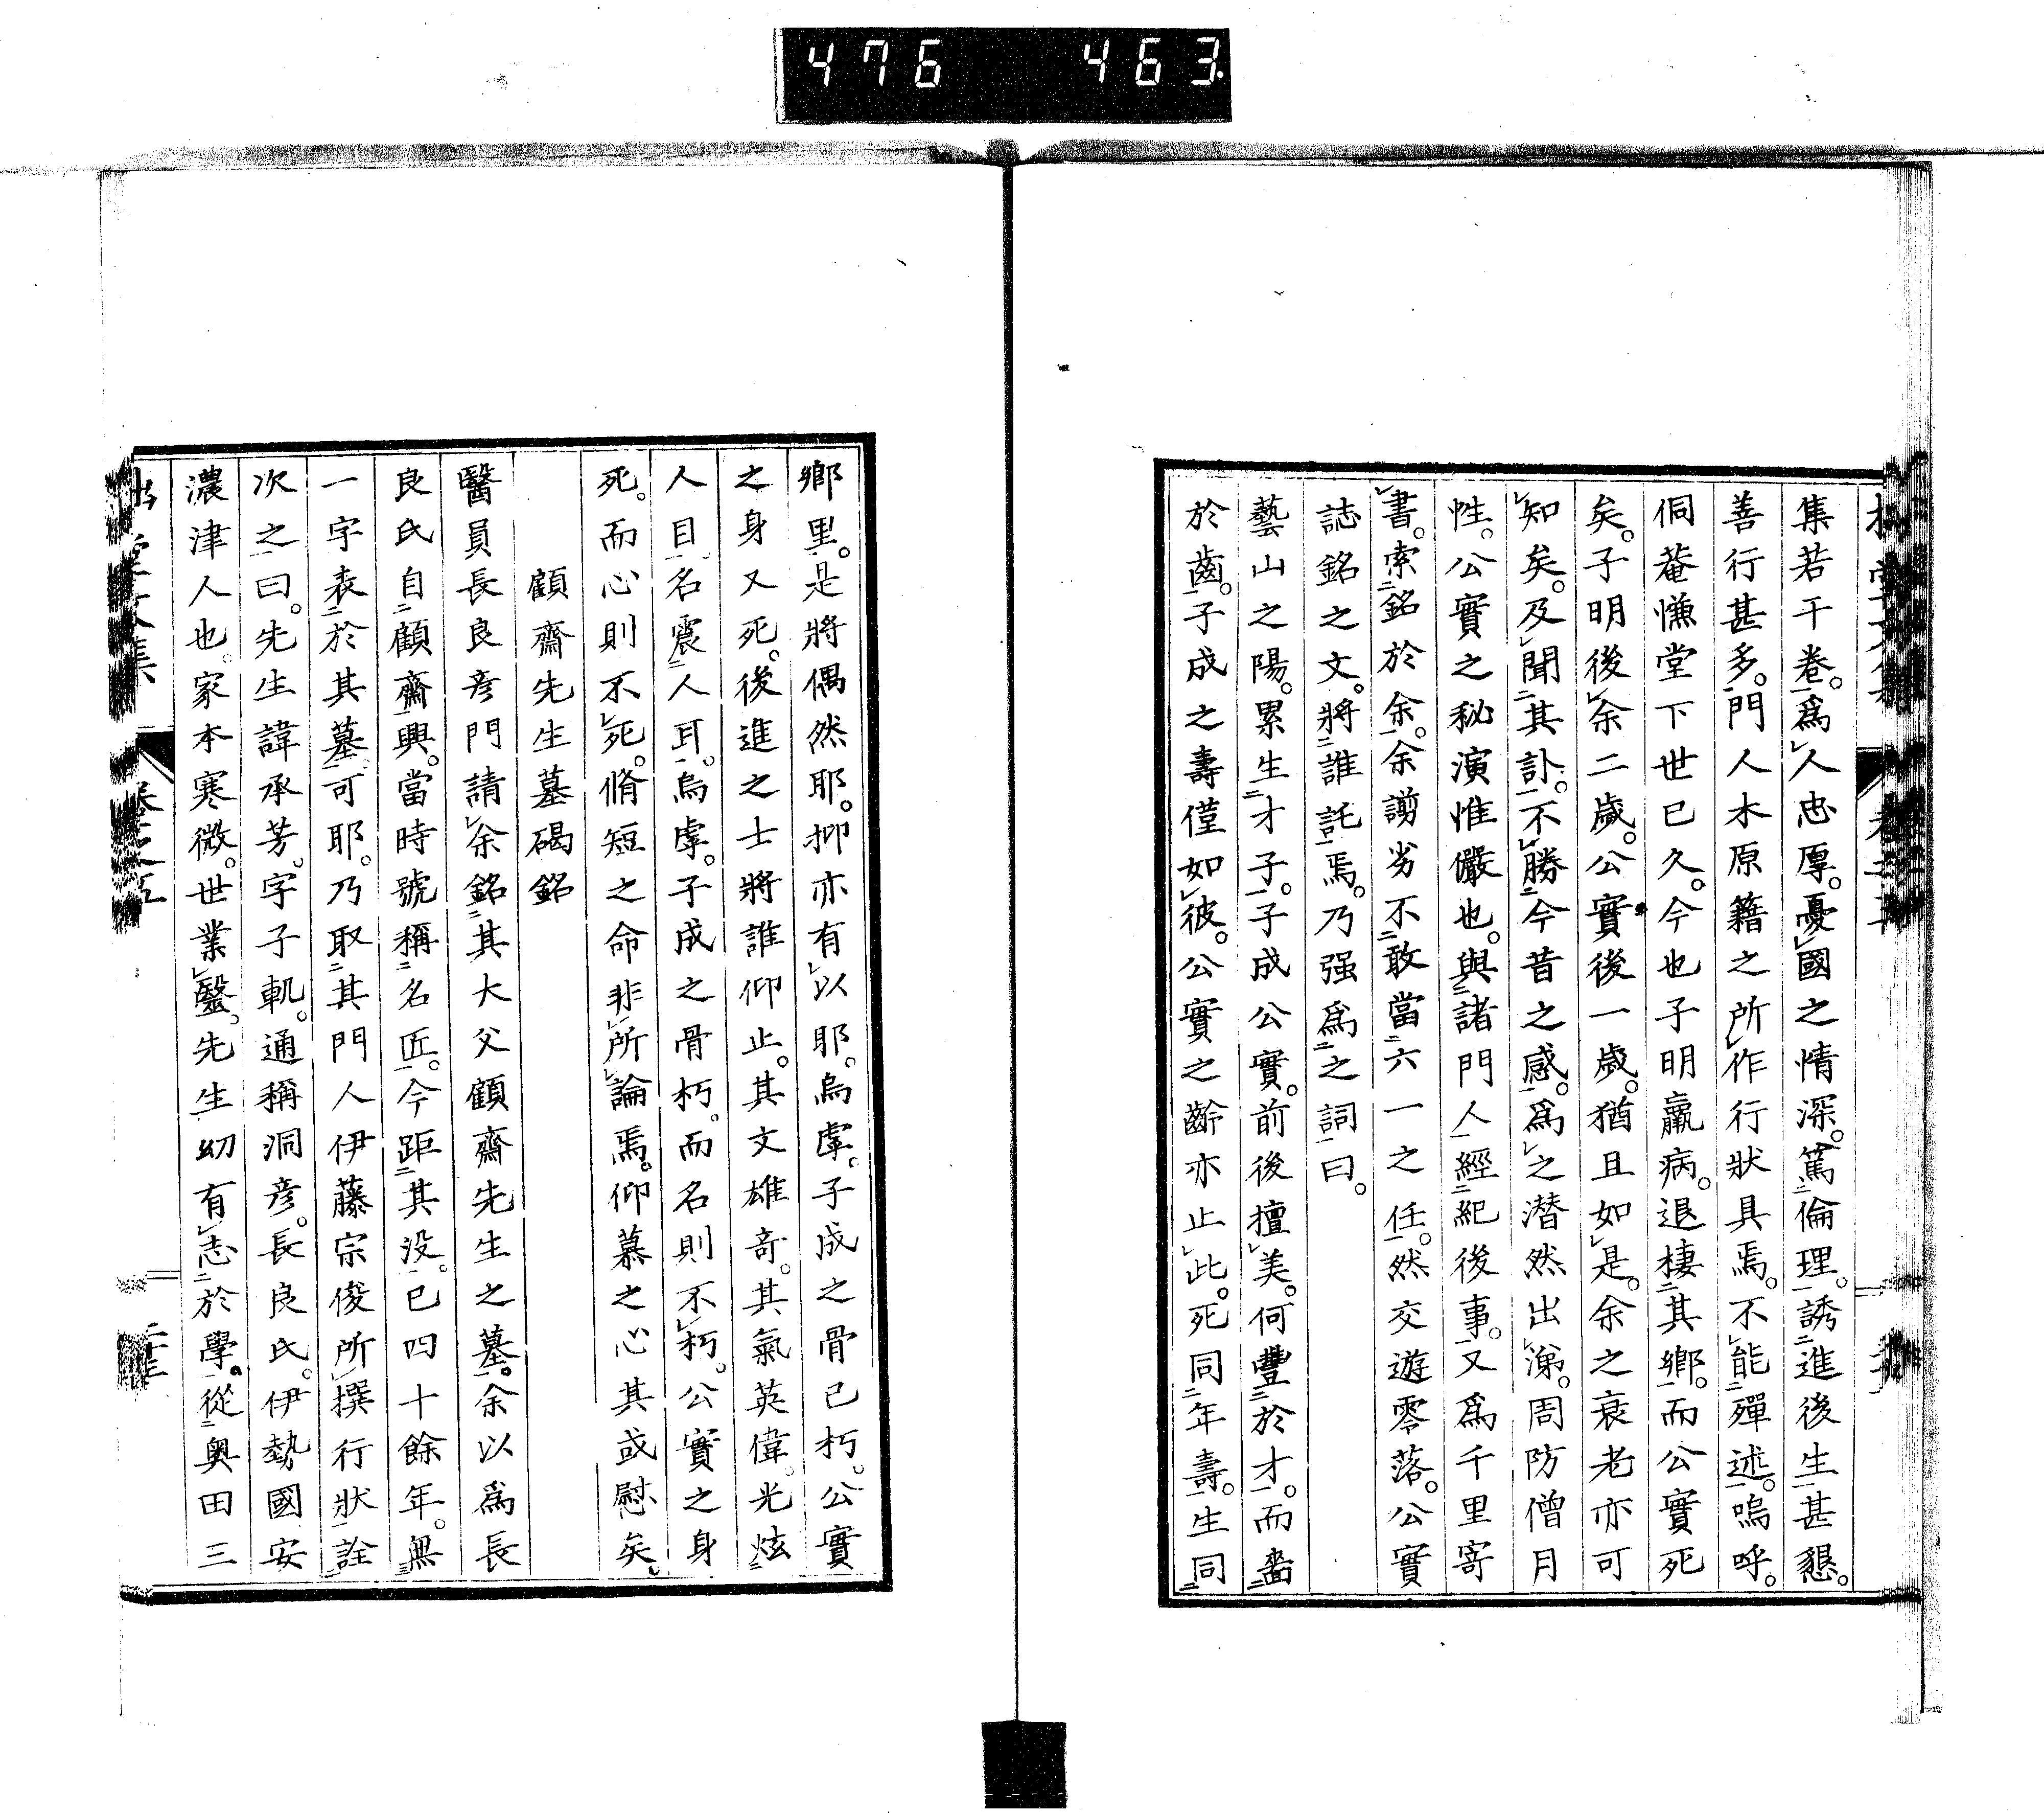 476 463.
集若干卷。爲人忠厚。憂國之情深。篤倫理。誘進後生甚懇。
善行甚多。門人木原籍之所作行狀具焉。不能殫述。嗚呼。
侗菴慊堂下世已久。今也子明羸病。退棲其鄉。而公實死
矣。子明後余二歲。公實後一歲。猶且如是。余之衰老亦可
知矣。及聞其訃。不勝今昔之感。爲之潸然出涕。周防僧月
性。公實之秘演惟儼也。與諸門人經紀後事。又爲千里寄
書。索銘於余。余謭劣不敢當六一之任。然交遊零落。公實
誌銘之文。將誰託焉。乃强爲之詞曰。
藝山之陽。累生才子。子成公實。前後擅美。何豐於才。而嗇
於齒。子成之壽僅如彼。公實之齡亦止此。死同年壽。生同
鄉里。是將偶然耶。抑亦有以耶。烏虖。子成之骨已朽。公實
之身又死。後進之士將誰仰止。其文雄奇。其氣英偉。光炫
人目名震人耳。烏虖。子成之骨朽。而名則不朽。公實之身
死。而心則不死。脩短之命非所論焉。仰慕之心其或慰矣。
顧齋先生墓碣銘
醫員長長良彦門請余銘其大父顧齋先生之墓。余以爲長
良氏自顧齋興。當時號稱名匠。今距其没。已四十餘年。無
一字表於其墓。可耶。乃取其門人伊藤宗俊所撰行狀詮
次之曰。先生諱承芳。字子軌。通稱洞彦。長良氏。伊勢國安
濃津人也。家本寒微。世業醫。先生幼有志於學。從奥田三